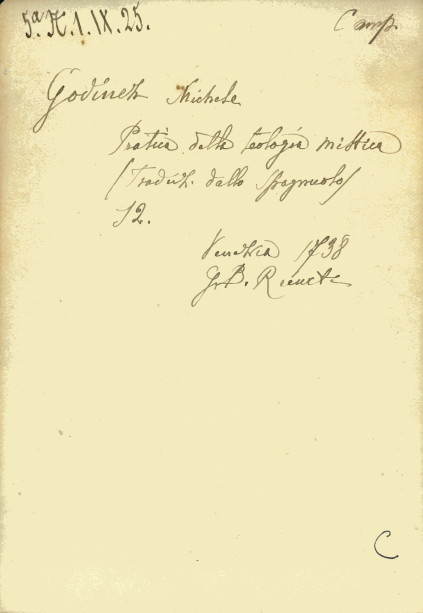 5ª H.1.IX.25.
Camp.
Godinez Michele
Pratica della teologia mistica
(Traduz. dallo Spagnuolo)
12.
Venezia 1738
G. B. Recurti
C